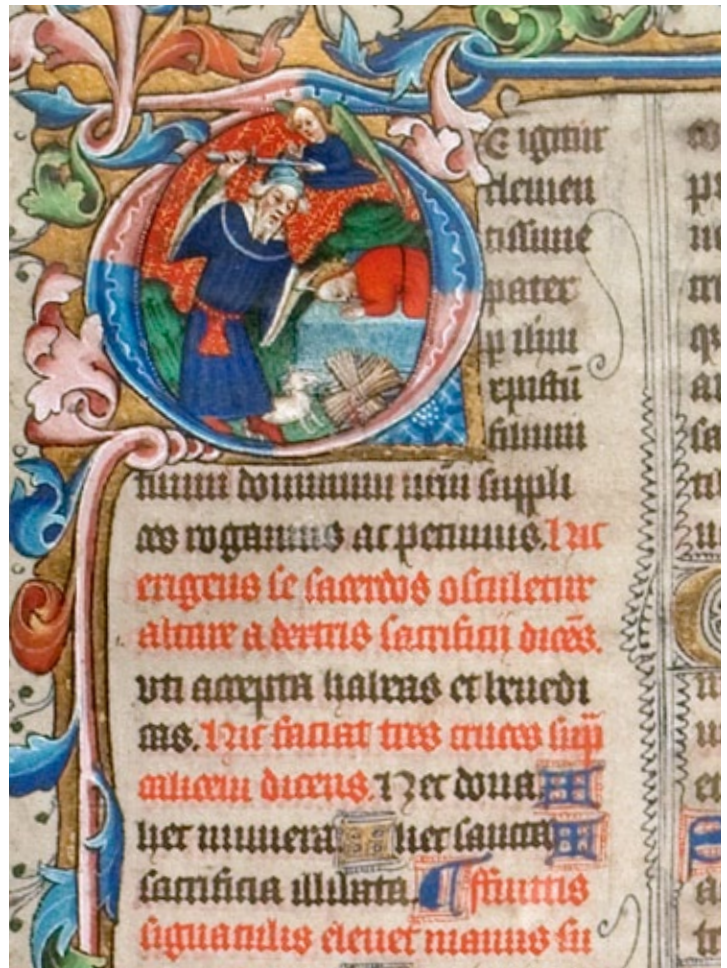 TE igitur
clemen
tissime
pater
ꝑ ihm
xpistū
filium
tuum dominum nrm̄ suppli
ces rogamus ac petimus. Hic
erigens se sacerdos osculetur
altare a dextris sacrificii dicēs.
vti accepta habeas et benedi
cas. Hic faciat tres cruces suꝑ
calicem dicens. Hec dona ✠
hec munera ✠ hec sancta ✠
sacrificia illibata. ¶ ffinitis
signaculis eleuet manus su